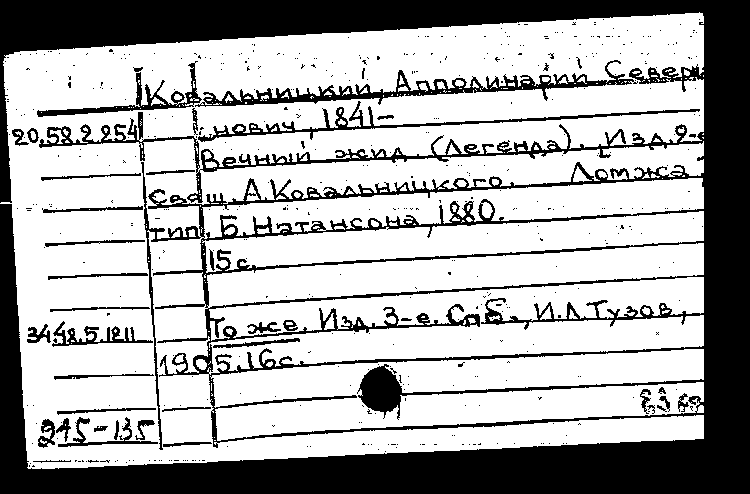 Ковальницкий, Апполинарий Северья
20.58.2.254 нович, 1841-
Вечный жид. (Легенда). [Изд. 2-е
Свящ. А. Ковальницкого. Ломжа,
тип. Б. Натансона, 1880.
15 с.
34.48.5.1211 То же. Изд. 3-е. Спб., И.Л. Тузов,
1905. 16 с.
245-135